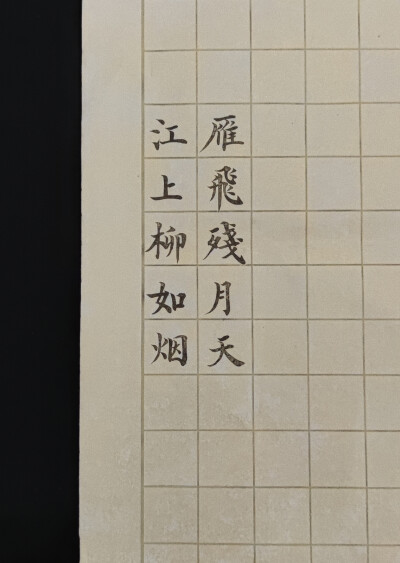 江上柳如烟
雁飛殘月天